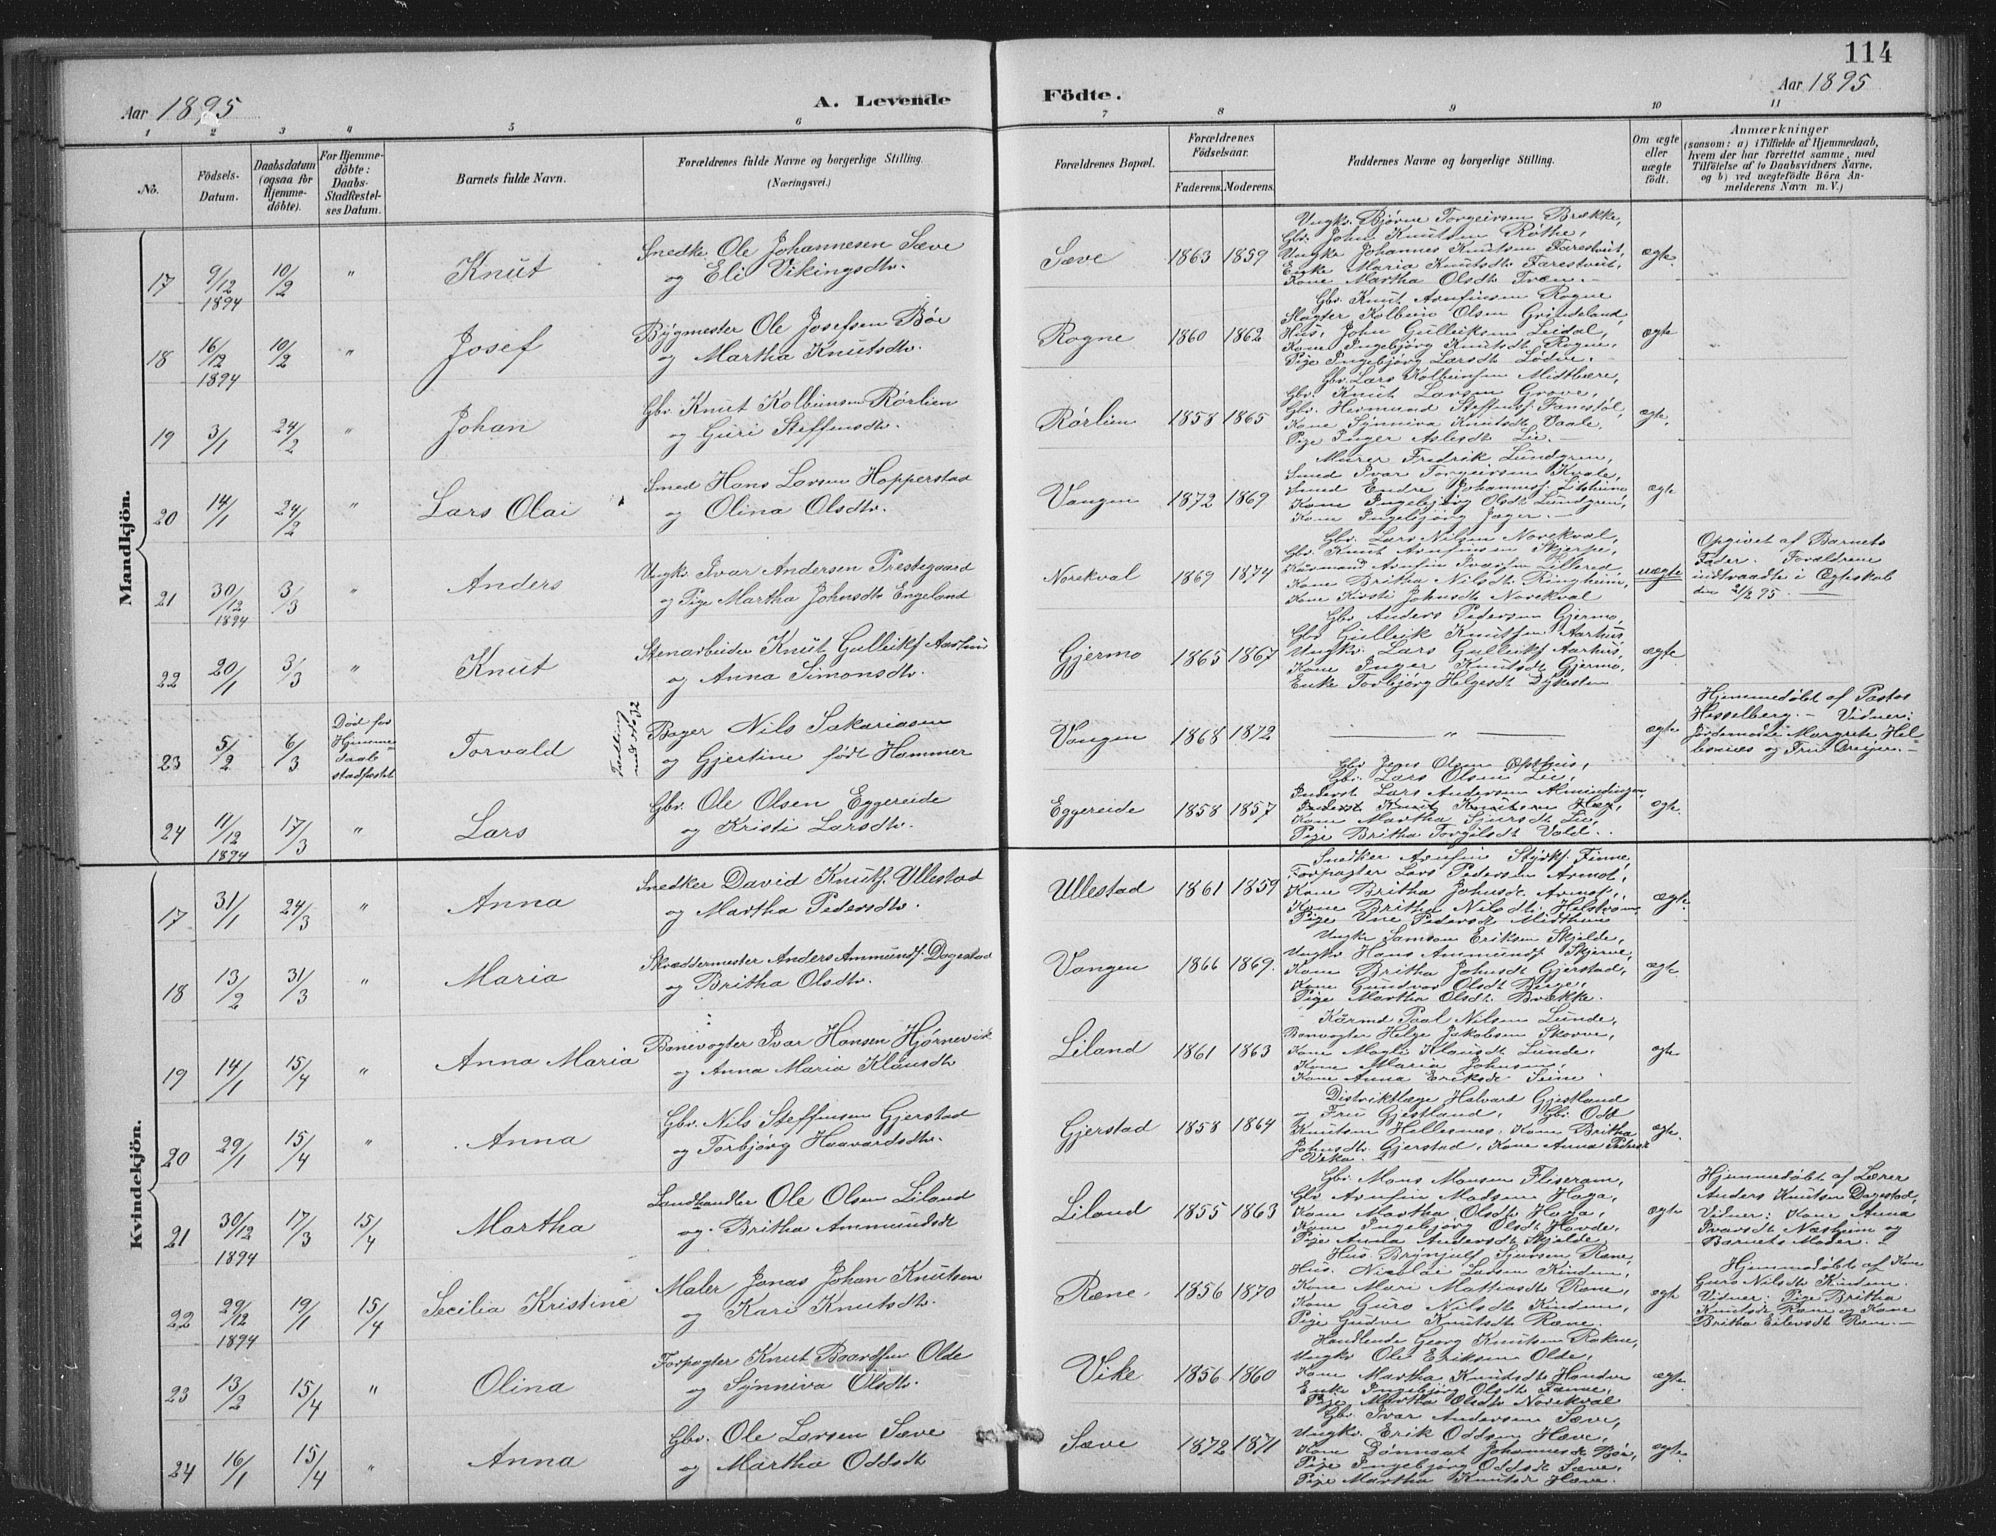 114
Aar 1895
A. Levende
Födte.
Aar 1895
1 2 3 4 5 6 7 8 9 10 11
No.
Födsels-
Datum.
Daabsdatum
(ogsaa for
Hjemme-
döbte).
For Hjemme-
döbte:
Daabs-
Stadfæstel-
ses Datum.
Barnets fulde Navn.
Forældrenes fulde Navne og borgerlige Stilling.
(Næringsvei.)
Forældrenes Bopæl.
Forældrenes
Födselsaar.
Faderens. Moderens.
Faddernes Navne og borgerlige Stilling.
Om ægte
eller
uægte
födt.
Anmærkninger
(saasom: a) i Tilfælde af Hjemmedaab,
hvem der har forrettet samme, med
Tilföielse af to Daabsvidners Navne,
og b) ved uægtefödte Börn An-
melderens Navn m. V.)
Mandkjön.
17 9/12 1894 10/2 " Knut
Snedke Ole Johannesen Sæve
og Eli Vikingsdtr.
Sæve 1863 1859
Ungk. Bjørne Torgeirsen Brække,
Gbr. John Knutsen Rothe,
Ungk. Johannes Knutsen Farestveit,
Enke Maria Knutsdtr Farestveit,
Kone Martha Olsdt Tværen.
ægte.
18 16/12 1894 10/2 " Josef
Bygmester Ole Josefsen Bøe
og Martha Knutsdtr.
Rogne 1860 1862
Gbr. Knut Arnfinsen Rogne
Slagter Kolbein Olsen Grindeland,
Hus. John Gulleiksen Leidal,
Kone Ingebjørg Knutsdt Rogne,
Pige Ingebjørg Larsdt Løden.
ægte
19 3/1 24/2 " Johan
Gbr. Knut Kolbeinsen Rørlien
og Guri Steffensdtr.
Rørlien 1858 1865
Gbr. Lars Kolbeinsen Midtbære,
Gbr. Knut Larsen Grove,
Gbr. Hermund Steffensf. Fanestøl,
Kone Synniva Knutsdt Vaale,
Pige Inger Aslesdt Lie.
ægte.
20 14/1 24/2 " Lars Olai
Smed Hans Larsen Hopperstad
og Olina Olsdtr.
Vangen 1872 1869
Murer Fredrik Lundgren,
Smed Ivar Torgeirsen Kvale,
Smed Endre Johannesf. Litskuno
Kone Ingebjørg Olsdt Lundgren,
Kone Ingebjørg Jæger.
ægte
21 30/12 1894 3/3 " Anders
Ungk. Ivar Andersen Prestegaard
og Pige Martha Johnsdtr Engeland
Norekval 1869 1874
Gbr. Lars Nilsen Norekval,
Gbr. Knut Arnfinsen Skjerpe,
Kusmand Arnfin Ivarsen Lillered
Kone Britha Nilsdt Ringheim,
Kone Kirsti Johnsdt Norekval
uægte
Opgivet af Barnets
Fader. Forældrene
indtraadte i Ægteskab
den 21/2 95.
22 20/1 3/3 " Knut
Stenarbeider Knut Gulleikf Aarhus
og Anna Simonsdtr.
Gjermo 1865 1867
Gbr. Anders Pedersen Gjermo,
Gbr. Gulleik Knutsen Aarhus,
Ungk. Lars Gulleikf Aarhus,
Kone Inger Knutsdt Gjermo,
Enke Torbjørg Helgesdt Dykesten
ægte
23 5/2 6/3
Død før
Hjemme
daab
stadfæstet
Torvald
Tvilling
med No 32
Bager Nils Sakariasen
og Gjertine født Hammer
Vangen 1868 1872 "
ægte
Hjemmedøbt af Pastor
Hesselberg. — Vidner:
Jordemoder Margrete Hel-
lesnæs og Fru Dreyer.
24 11/12 1894 17/3 " Lars
Gbr. Ole Olsen Eggereide
og Kristi Larsdtr.
Eggereide 1858 1857
Gbr. Jens Olsen Østhus,
Gbr. Lars Olsen Lie,
Inderst Lars Andersen Almindingen
Inderst Knut Knutsen Hæg,
Kone Martha Sjursdt Lie,
Pige Britha Torgilsdt Vold.
ægte.
Kvindekjön.
17 31/1 24/3 " Anna
Snedker David Knutf. Ullestad
og Martha Pedersdtr.
Ullestad 1861 1859
Snedker Arnfin Styrkf. Finne,
Forpagter Lars Pedersen Armot,
Kone Britha Johnsdt Armot,
Kone Britha Nilsdt Helstrøm,
Pige Une Pedersdt Midthun
ægte.
18 13/2 31/3 " Maria
Skræddermester Anders Ammundf. Dagestad
og Britha Olsdtr.
Vangen 1866 1869.
Ungk. Samson Eriksen Skjelde,
Ungk. Hans Ammundf Skjerve,
Kone Britha Johnsdt Gjerstad,
Kone Gundvor Olsdt Berge,
Pige Martha Olsdt Brække.
ægte
19 14/1 15/4 " Anna Maria
Banevogter Ivar Hansen Hjørnevik
og Anna Maria Klausdt
Liland 1861 1863
Kårmd Paal Nilsen Lunde,
Banevogter Helge Jakobsen Skorve,
Kone Magli Klausdt Lunde,
Kone Maria Johnsen,
Kone Anna Eriksdt Seim.
ægte
20 29/1 15/4 " Anna
Gbr. Nils Steffensen Gjerstad
og Torbjørg Haavardsdtr.
Gjerstad 1858 1864
Distriktlæge Halvard Gjestland
og Fru Gjestland, Gbr. Odd
Knutsen Hellesnæs, Kone Britha
Johnsdtr. Gjerstad, Kone Anna Pedersdt
Vike.
ægte.
21 30/12 1894 17/3 15/4 Martha
Landhandler Ole Olsen Liland
og Britha Ammundsdt
Liland 1855 1863
Gbr. Mons Monsen Fliseram,
Gbr Arnfin Madsen Haga,
Kone Martha Olsdt Haga,
Kone Ingebjørg Olsdt Hovde,
Pige Anna Andersdt Skjelde
ægte
Hjemmedøbt af Lærer
Anders Knutsen Dagestad,
Vidner: Kone Anna
Ivarsdt Næsheim og
Barnets Moder.
22 29/12 1894 19/1 15/4 Secilia Kristine
Maler Jonas Johan Knutsen
og Kari Knutsdtr.
Ræne. 1856 1870
Hus. Brynjulf Sjursen Ræne,
Hus. Nicolai Larsen Kindem,
Kone Mari Mathiasdt Ræne,
Kone Guro Nilsdt Kindem,
Pige Gudve Knutsdt Ræne.
ægte
Hjemmedøbt af Kone
Guro Nilsdt Kindem.
Vidner: Pige Britha
Knutsdt Ræne og Kone
Britha Eilevsdt Ræne.
23 13/2 15/4 " Olina
Forpagter Knut Baardsen Olde
og Synniva Olsdtr.
Vike 1856 1860
Handlende Georg Knutsen Rokne,
Ungk Ole Eriksen Olde,
Kone Martha Knutsdt Hander
Enke Ingebjørg Olsdt Fenne,
Pige Martha Olsdt Norekval
ægte
24 16/1 15/4 " Anna
Gbr. Ole Larsen Sæve
og Martha Oddsdt
Sæve 1872 1871
Gbr Ivar Andersen Sæve,
Ungk. Erik Oddsen Hæve,
Kone Dønnaat Johannesdt Bø,
Pige Ingebjørg Oddsdt Sæve,
Pige Martha Knutsdt Hæve.
ægte